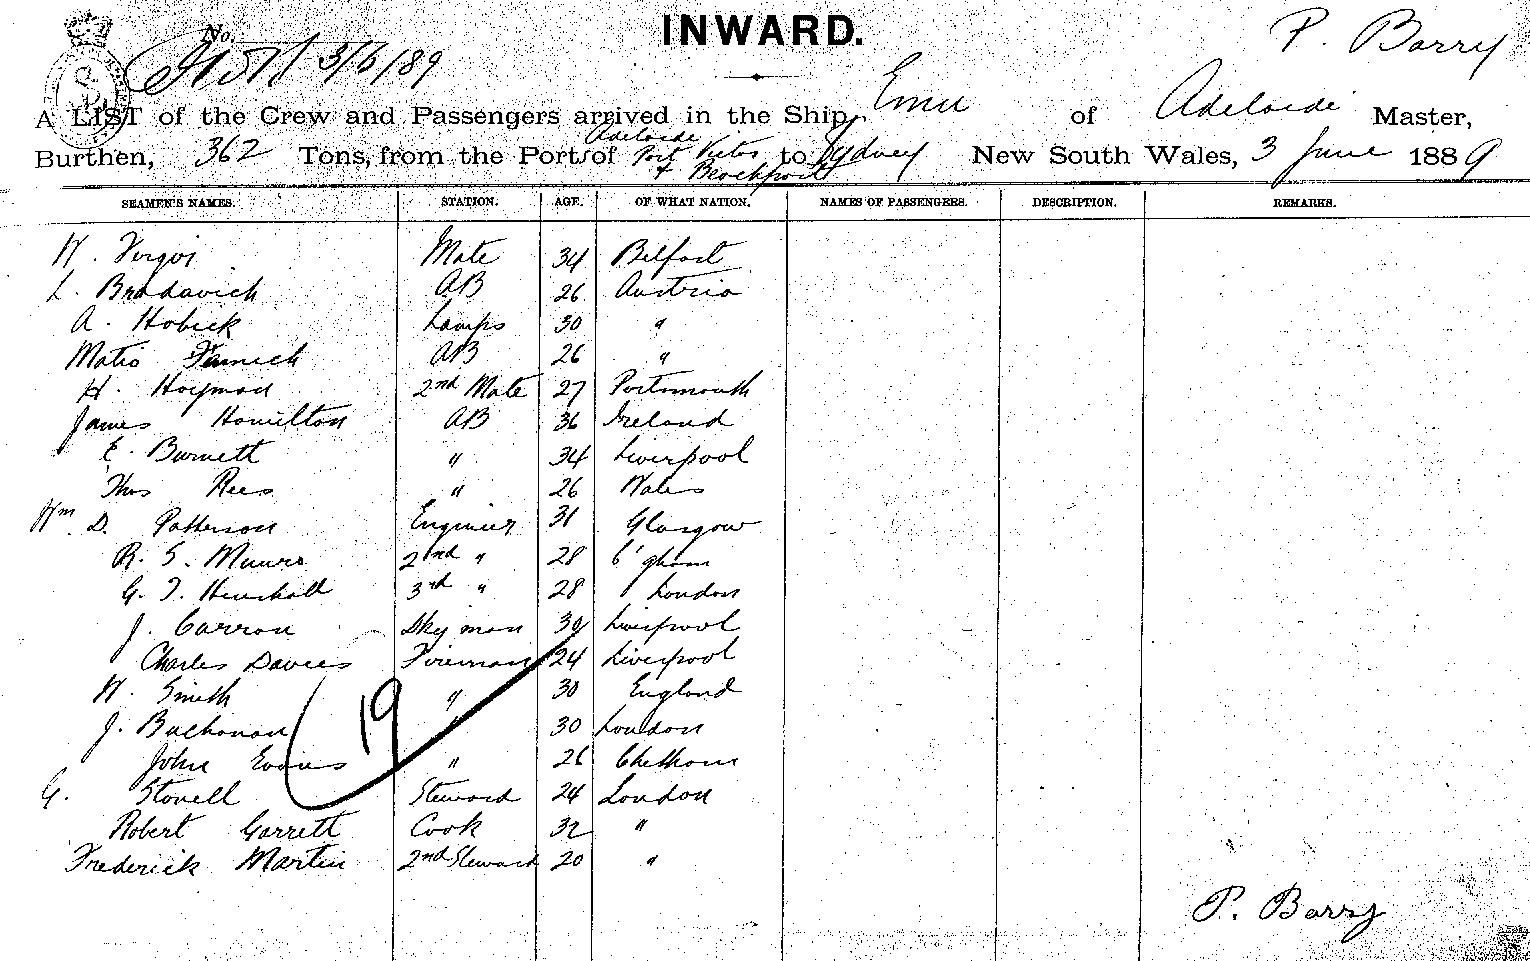 INWARD.
No.
3/6/89
P. Barry
A LIST of the Crew and Passengers arrived in the Ship, Emu of Adelaide Master,
Burthen, 362 Tons, from the Ports of Adelaide Port Victor & to Sydney New South Wales, 3 June 1889
SEAMEN'S NAMES. STATION. AGE. OF WHAT NATION. NAMES OF PASSENGERS. DESCRIPTION. REMARKS.
W. Mate 34 Belfast
L. Bradavich AB 26 Austria
A. Hobick Lamps 30 "
Matio AB 26 "
H. Hayman 2nd Mate 27 Portsmouth
James Hamilton AB 36 Ireland
E. Burnett " 34 Liverpool
Thos Rees " 26 Wales
Wm D. Patterson Engineer 31 Glasgow
R. S. Munro 2nd " 28 B'gham
G. T. Henshall 3rd " 28 London
J. Carron Dky man 30 Liverpool
Charles Davies Fireman 24 Liverpool
W. Smith " 30 England
J. Buchanan " 30 London
John Evans " 26 Chatham
G. Stovell Steward 24 London
Robert Garrett Cook 32 "
Frederick Martin 2nd Steward 20 "
19
P. Barry